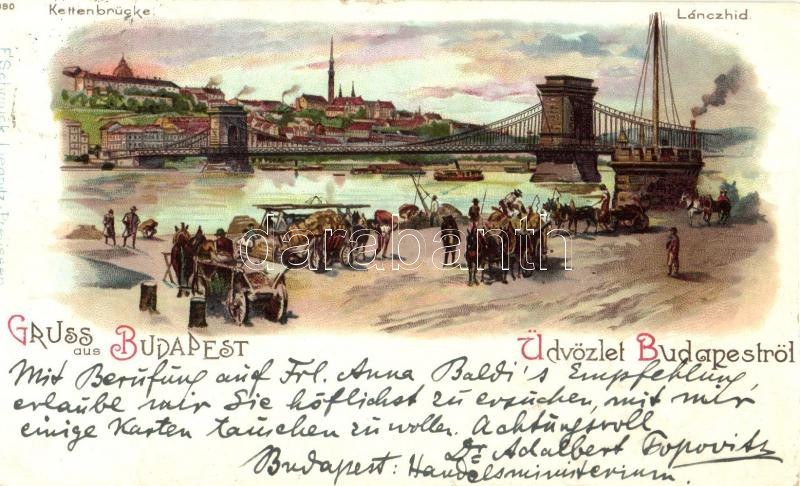 390
Kettenbrücke.
Lánczhid.
F. Schmuck, Liegnitz, Preussen
darabanth
GRUSS aus BUDAPEST
Üdvözlet Budapestról
Mit Berufung auf Frl. Anna Baldi's Empfehlung,
erlaube mir Sie höflichst zu ersuchen, mit mir
einige Karten tauschen zu wollen. Achtungsvoll
Dr Adalbert Topovitz
Budapest: Handelsministerium.